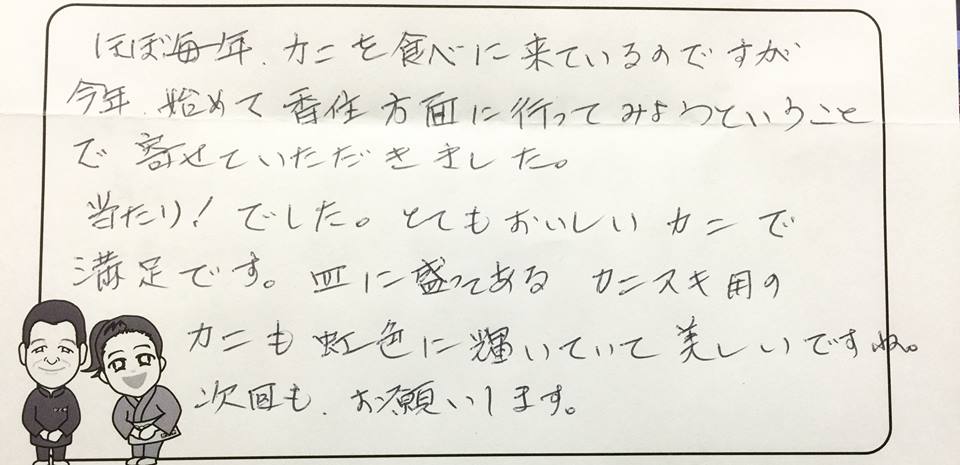 ほぼ毎年、カニを食べに来ているのですが
今年、始めて香住方面に行ってみようということ
で寄せていただきました。
当たり！でした。とてもおいしいカニで
満足です。皿に盛ってある カニスキ用の
カニも虹色に輝いていて美しいですね。
次回も、お願いします。